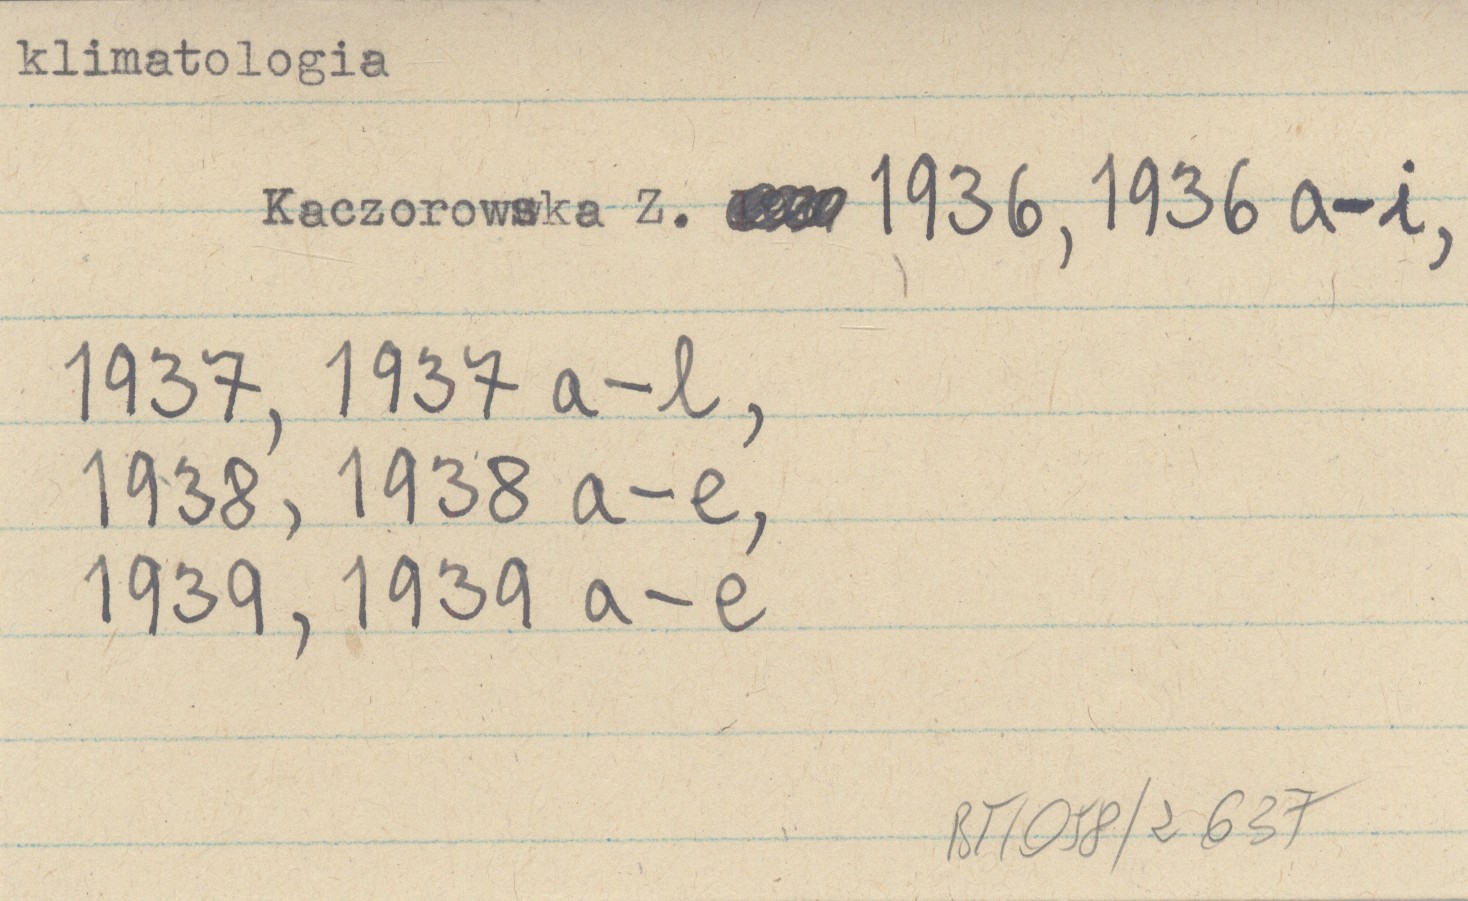 klimatologia
Kaczorowska Z. 1936, 1936 a-i,
1937, 1937 a-l,
1938, 1938 a-e,
1939, 1939 a-e
BT/058/2 637